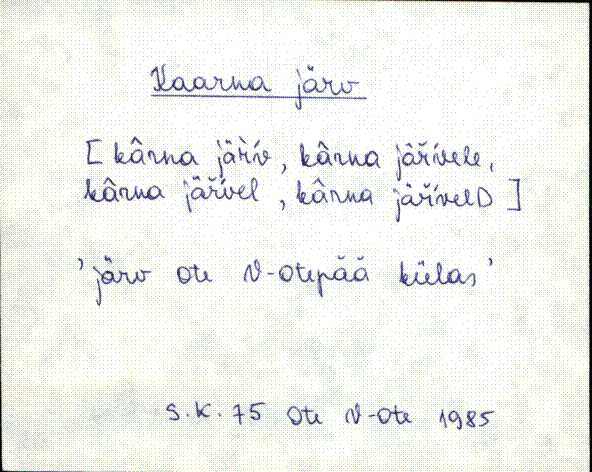 Kaarna järv
[kârna jäŕív, kârna jäŕívele,
kârna jäŕível, kârna jäŕívelD]
'järv Ote V-Otepää külas'
S.K. 75 Ote V-Ote 1985